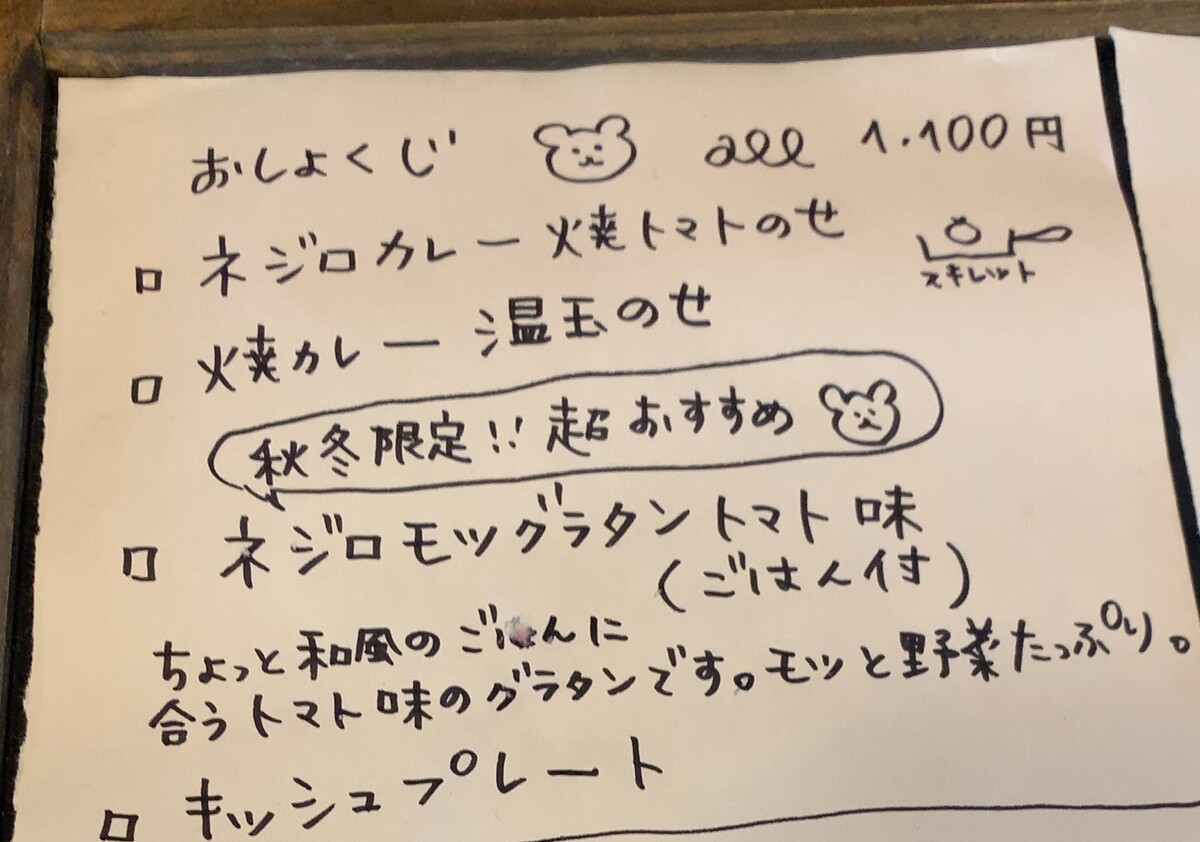 おしょくじ all 1.100円
□ ネジロカレー 焼トマトのせ
スキレット
□ 焼カレー 温玉のせ
秋冬限定!! 超おすすめ
□ ネジロモツグラタントマト味
(ごはん付)
ちょっと和風のごはんに
合うトマト味のグラタンです。モツと野菜たっぷり。
□ キッシュプレート